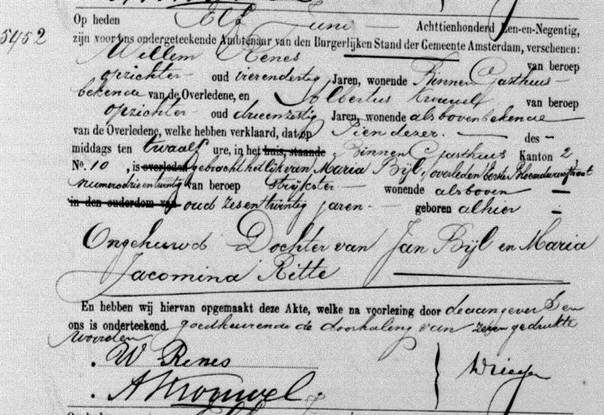 5452
Op heden Elf Juni Achttienhonderd Een-en-Negentig,
zijn voor ons ondergeteekende Ambtenaar van den Burgerlijken Stand der Gemeente Amsterdam, verschenen:
Willem Renes van beroep
opzichter oud vierendertig Jaren, wonende Binnen Gasthuis
bekende van de Overledene, en Albertus van beroep
opzichter oud drieenzestig Jaren, wonende als boven bekende
van de Overledene, welke hebben verklaard, dat op Tien dezer des
middags ten twaalf ure, in het huis, staande Binnen Gasthuis Kanton 2
No. 10, is overleden gebracht het lijk van Maria Bijl, overleden
numero drie en twintig van beroep strijkster wonende als boven
in den ouderdom van oud zesentwintig jaren geboren alhier
Ongehuwd Dochter van Jan Bijl en Maria
Jacomina Ritte
En hebben wij hiervan opgemaakt deze Akte, welke na voorlezing door de aangevers en
ons is onderteekend. goedkeurende de doorhaling van zeven gedrukte
woorden
W Renes